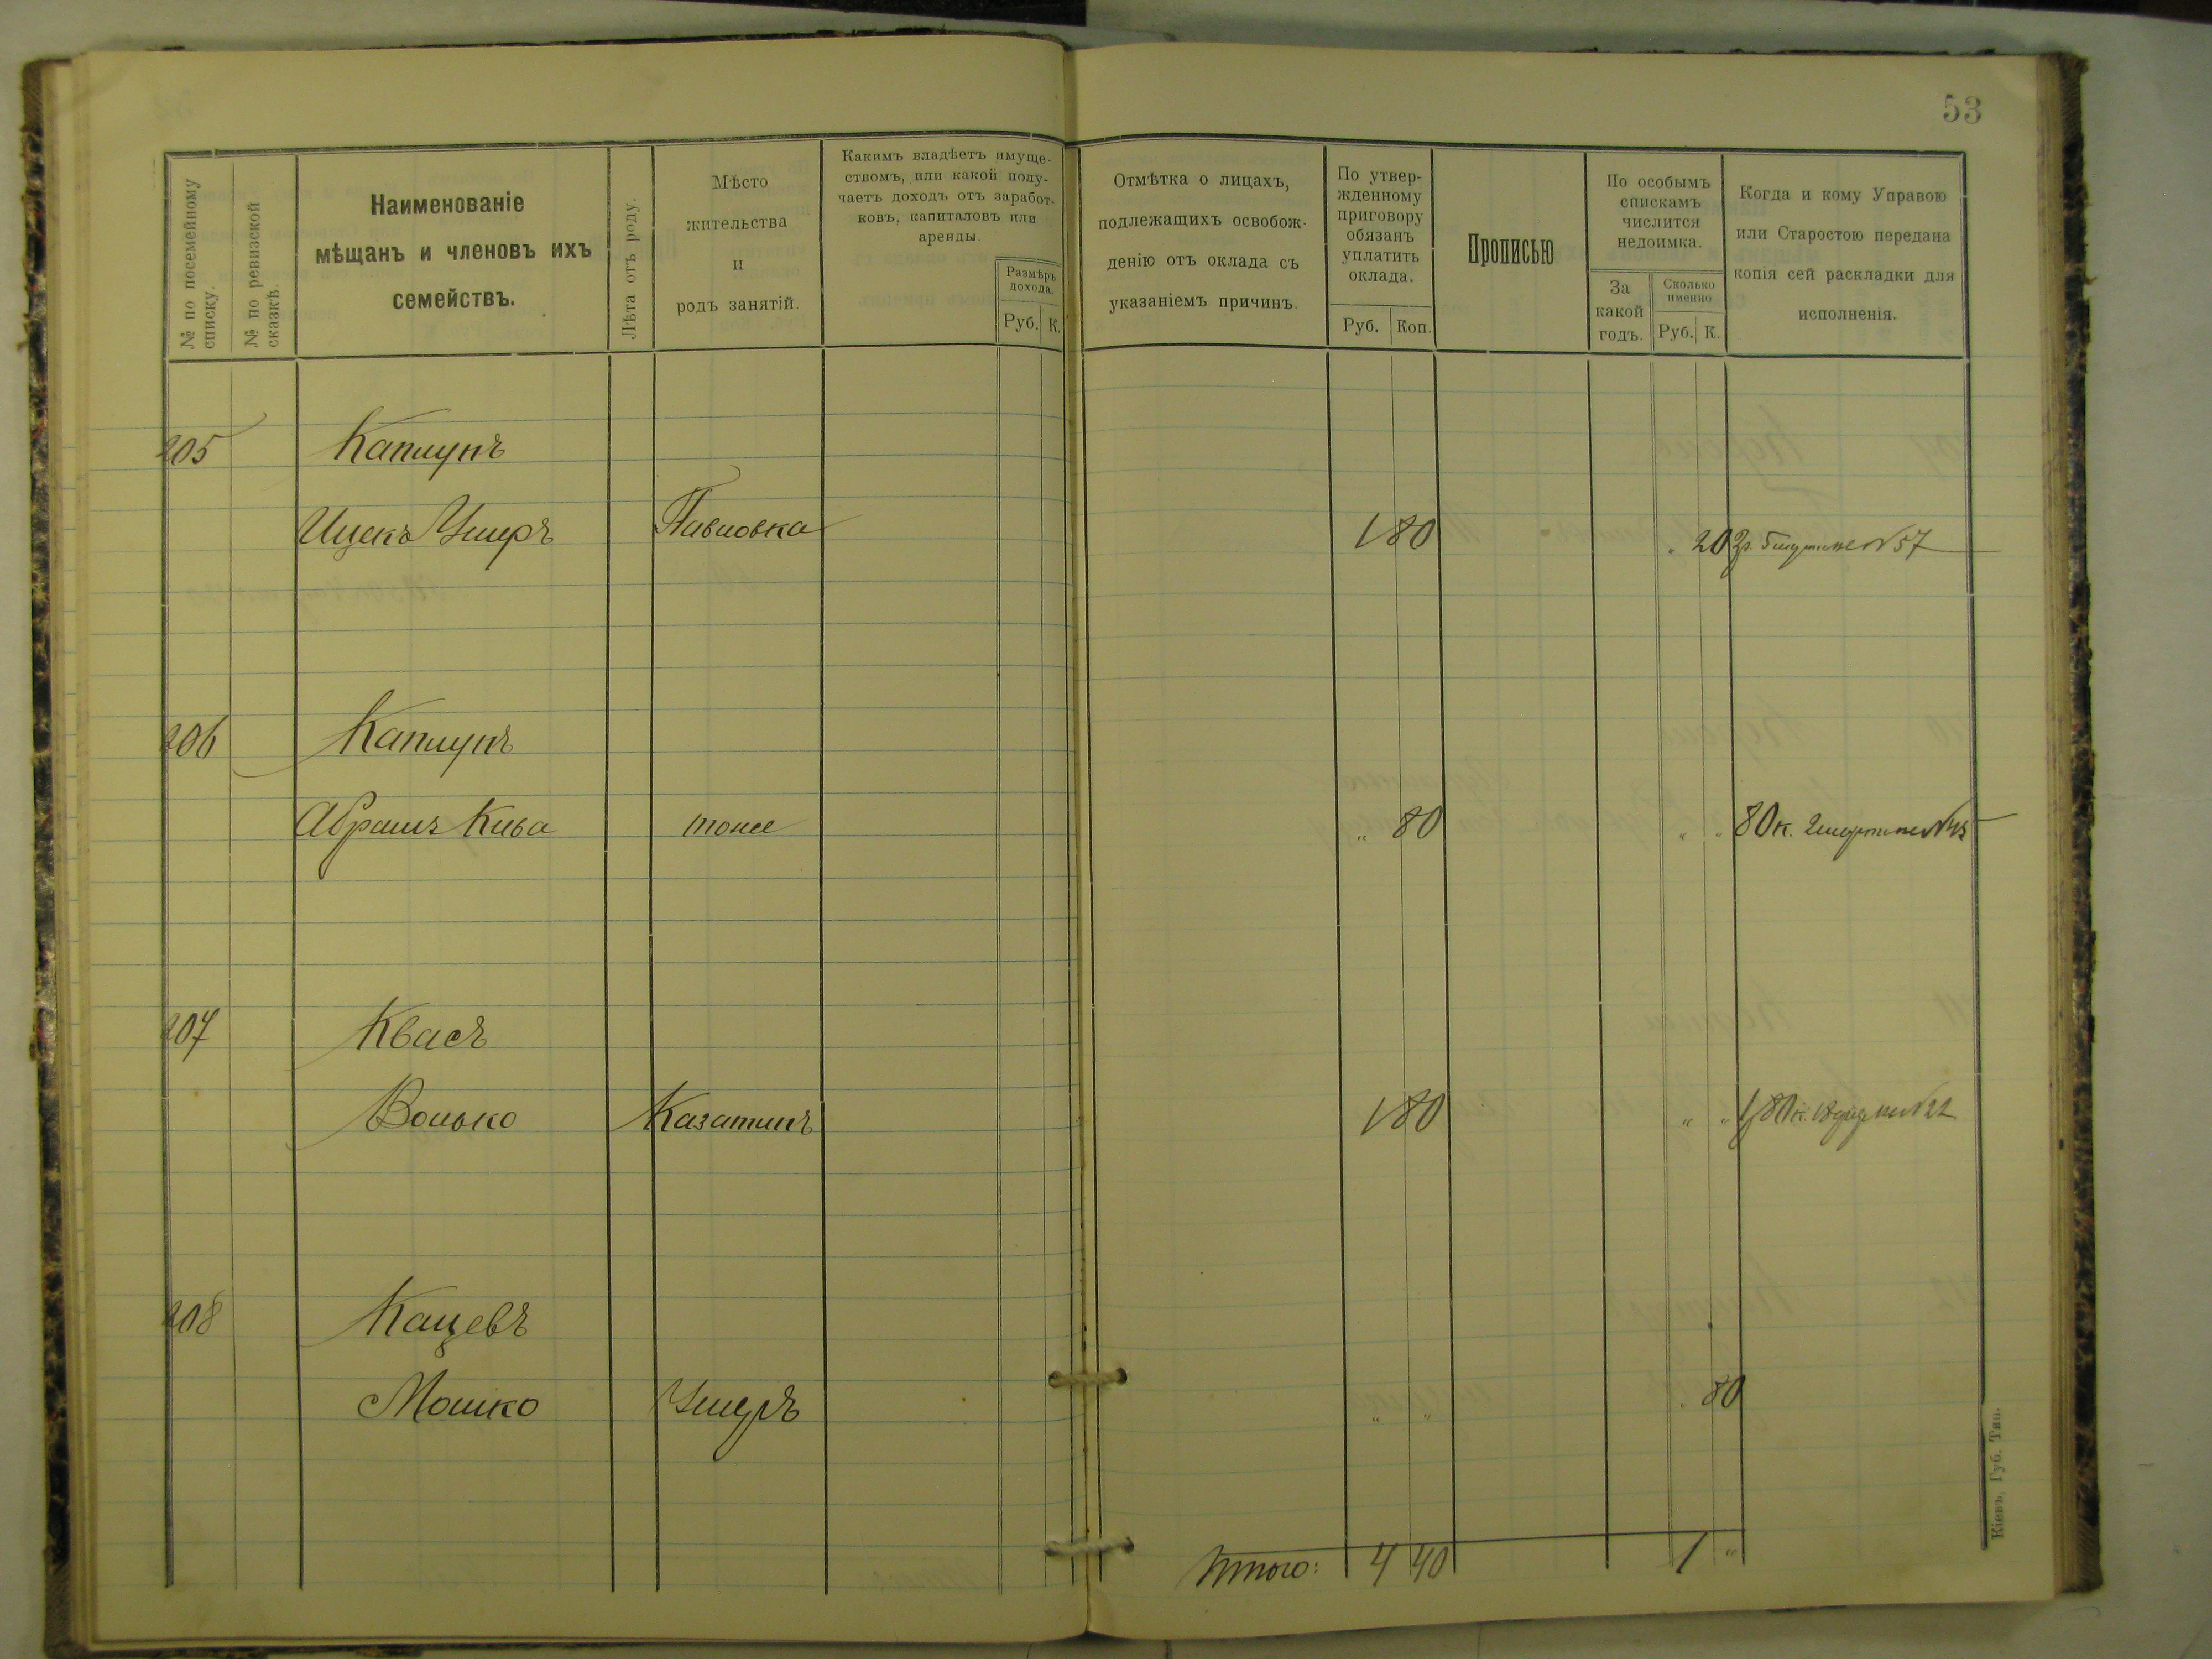 53
№ по посемейному списку.
№ по ревизской сказкѣ.
Наименованіе
мѣщанъ и членовъ ихъ
семействъ.
Лѣта отъ роду.
Мѣсто
жительства
и
родъ занятій.
Какимъ владѣетъ имуще-
ствомъ, или какой полу-
чаетъ доходъ отъ заработ-
ковъ, капиталовъ или
аренды.
Размѣръ
дохода.
Руб. К.
Отмѣтка о лицахъ,
подлежащихъ освобож-
денію отъ оклада съ
указаніемъ причинъ.
По утвер-
жденному
приговору
обязанъ
уплатить
оклада.
Руб. Коп.
Прописью
По особымъ
спискамъ
числится
недоимка.
За
какой
годъ.
Сколько
именно
Руб. К.
Когда и кому Управою
или Старостою передана
копія сей раскладки для
исполненія.
205 Каплунъ
Ицекъ Ушеръ Павловка 1 80 20 2р. 5 №57
206 Каплунъ
Абрамъ Кива тоже " 80 " " 80 к. 2
207 Квасъ
Волько Казатинъ 1 80 " " 1 80 к. 18 №22
208 Кацевъ
Мошко " " 80
Итого: 4 40 1 "
Кіевъ, Губ. Тип.